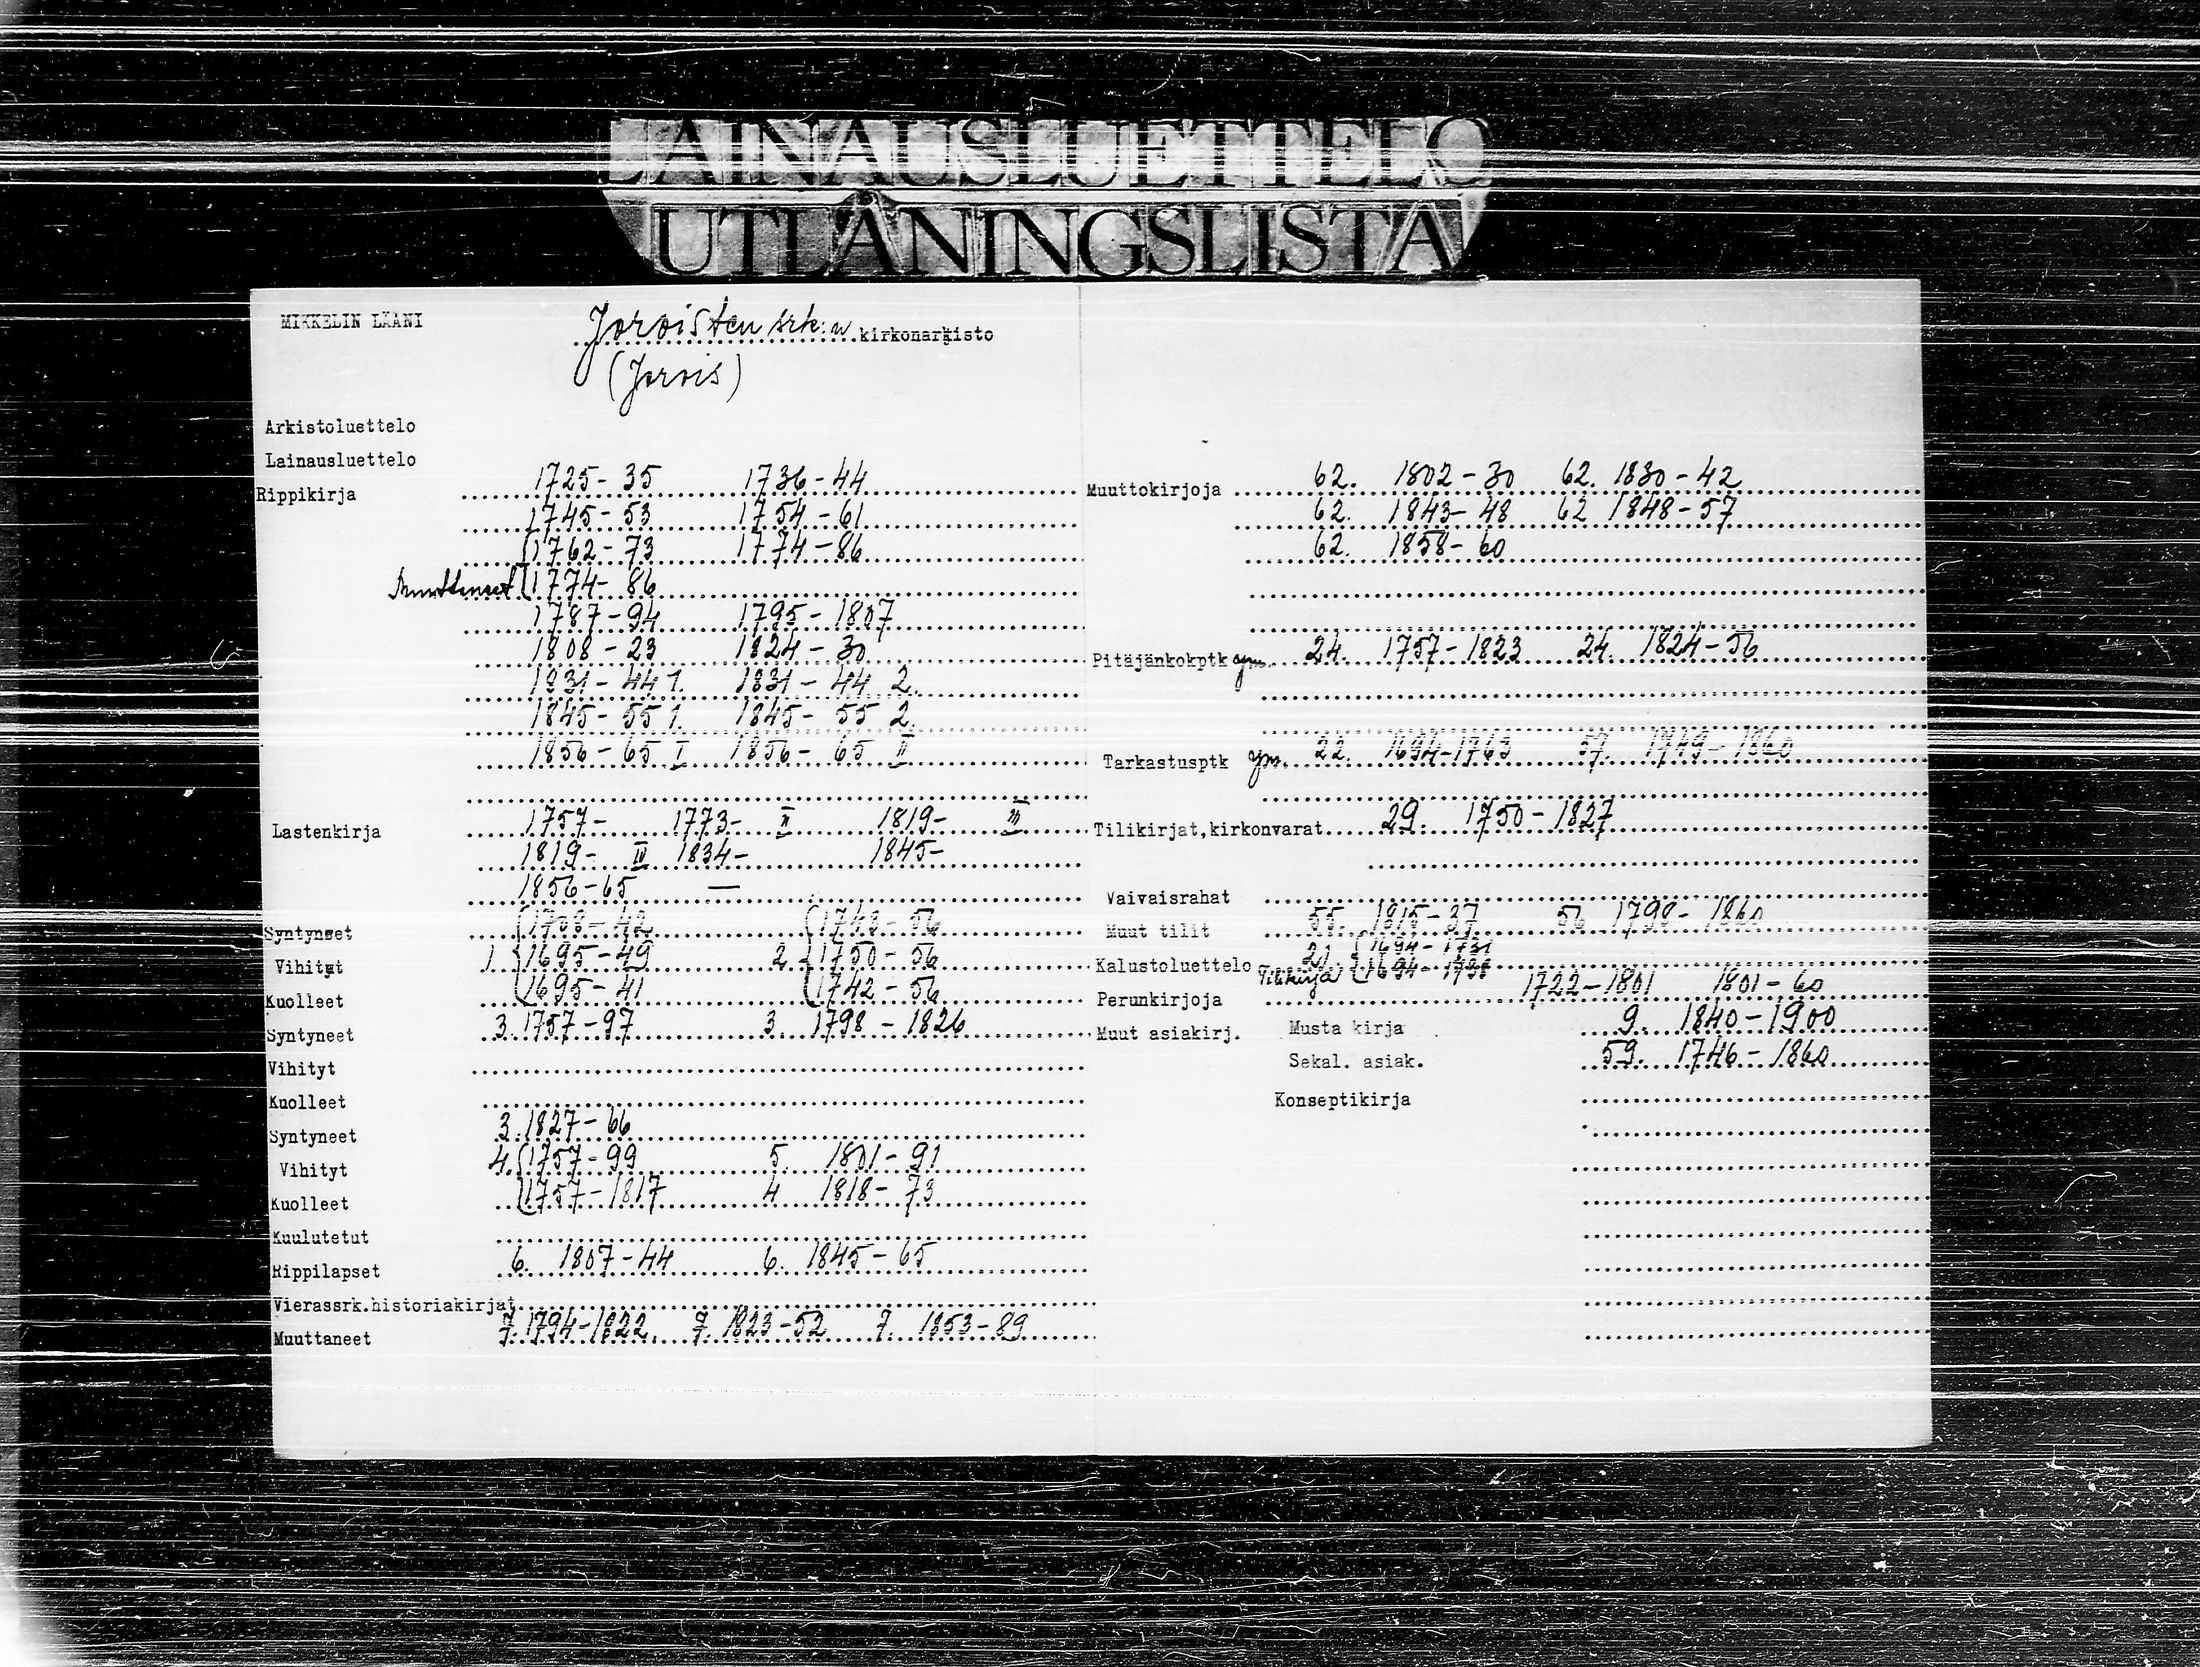 LAINAUSLUETTELO
UTLÅNINGSLISTA
MIKKELIN LÄÄNI
Joroisten srk:n kirkonarkisto
(Jorois)
Arkistoluettelo
Lainausluettelo
Rippikirja 1725-35 1736-44
1745-53 1754-61
1762-73 1774-86
Muuttaneet 1774-86
1787-94 1795-1807
1808-23 1824-30
1831-44 1. 1831-44 2.
1845-55 1. 1845-55 2.
1856-65 I 1856-65 II
Lastenkirja 1757- 1773- II 1819- III
1819- IV 1834- 1845-
1856-65 —
Syntyneet 1738-42 1743-56
Vihityt 1 1695-49 2 1750-56
Kuolleet 1695-41 1742-56
Syntyneet 3. 1757-97 3. 1798-1826
Vihityt
Kuolleet
Syntyneet 3. 1827-66
Vihityt 4. 1757-99 5. 1801-91
Kuolleet 1757-1817 4 1818-73
Kuulutetut
Rippilapset 6. 1807-44 6. 1845-65
Vierassrk.historiakirjat
Muuttaneet 7. 1794-1822 7. 1823-52 7. 1853-89
Muuttokirjoja 62. 1802-30 62. 1830-42
62. 1843-48 62 1848-57
62. 1858-60
Pitäjänkokptk ym. 24. 1757-1823 24. 1824-56
Tarkastusptk ym. 22. 1694-1763 57. 1749-1860
Tilikirjat,kirkonvarat 29. 1750-1827
Vaivaisrahat
Muut tilit 55. 1815-37 56 1798-1860
Kalustoluettelo 21. 1694-1731
Tilikirja 1694-1736
Perunkirjoja 1722-1801 1801-60
Muut asiakirj. Musta kirja 9. 1840-1900
Sekal. asiak. 59. 1746-1860
Konseptikirja